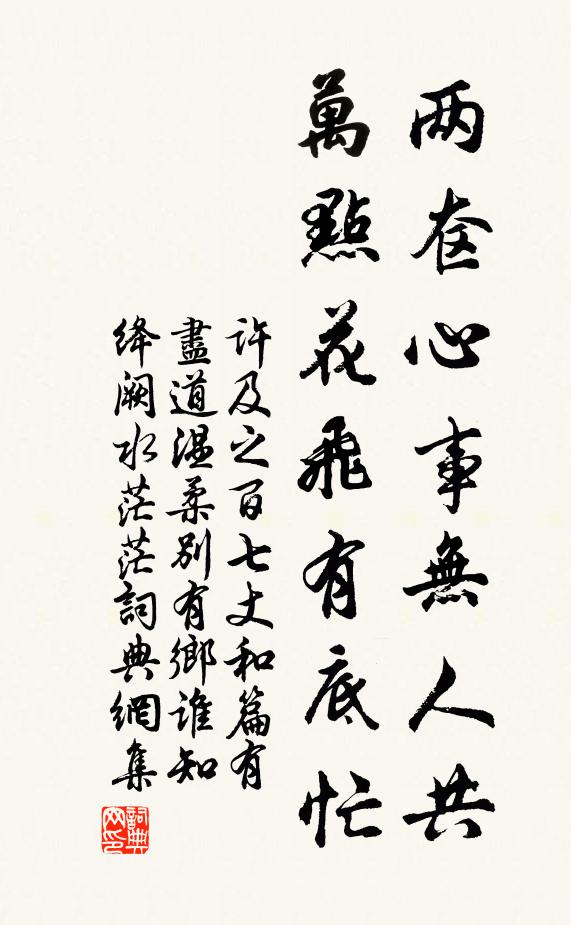 两奁心事無人共
萬點花飛有底忙
許及之百七丈和篇有
盡道温柔别有鄉誰知
绛阙水茫茫詞典網集
詞典
网印